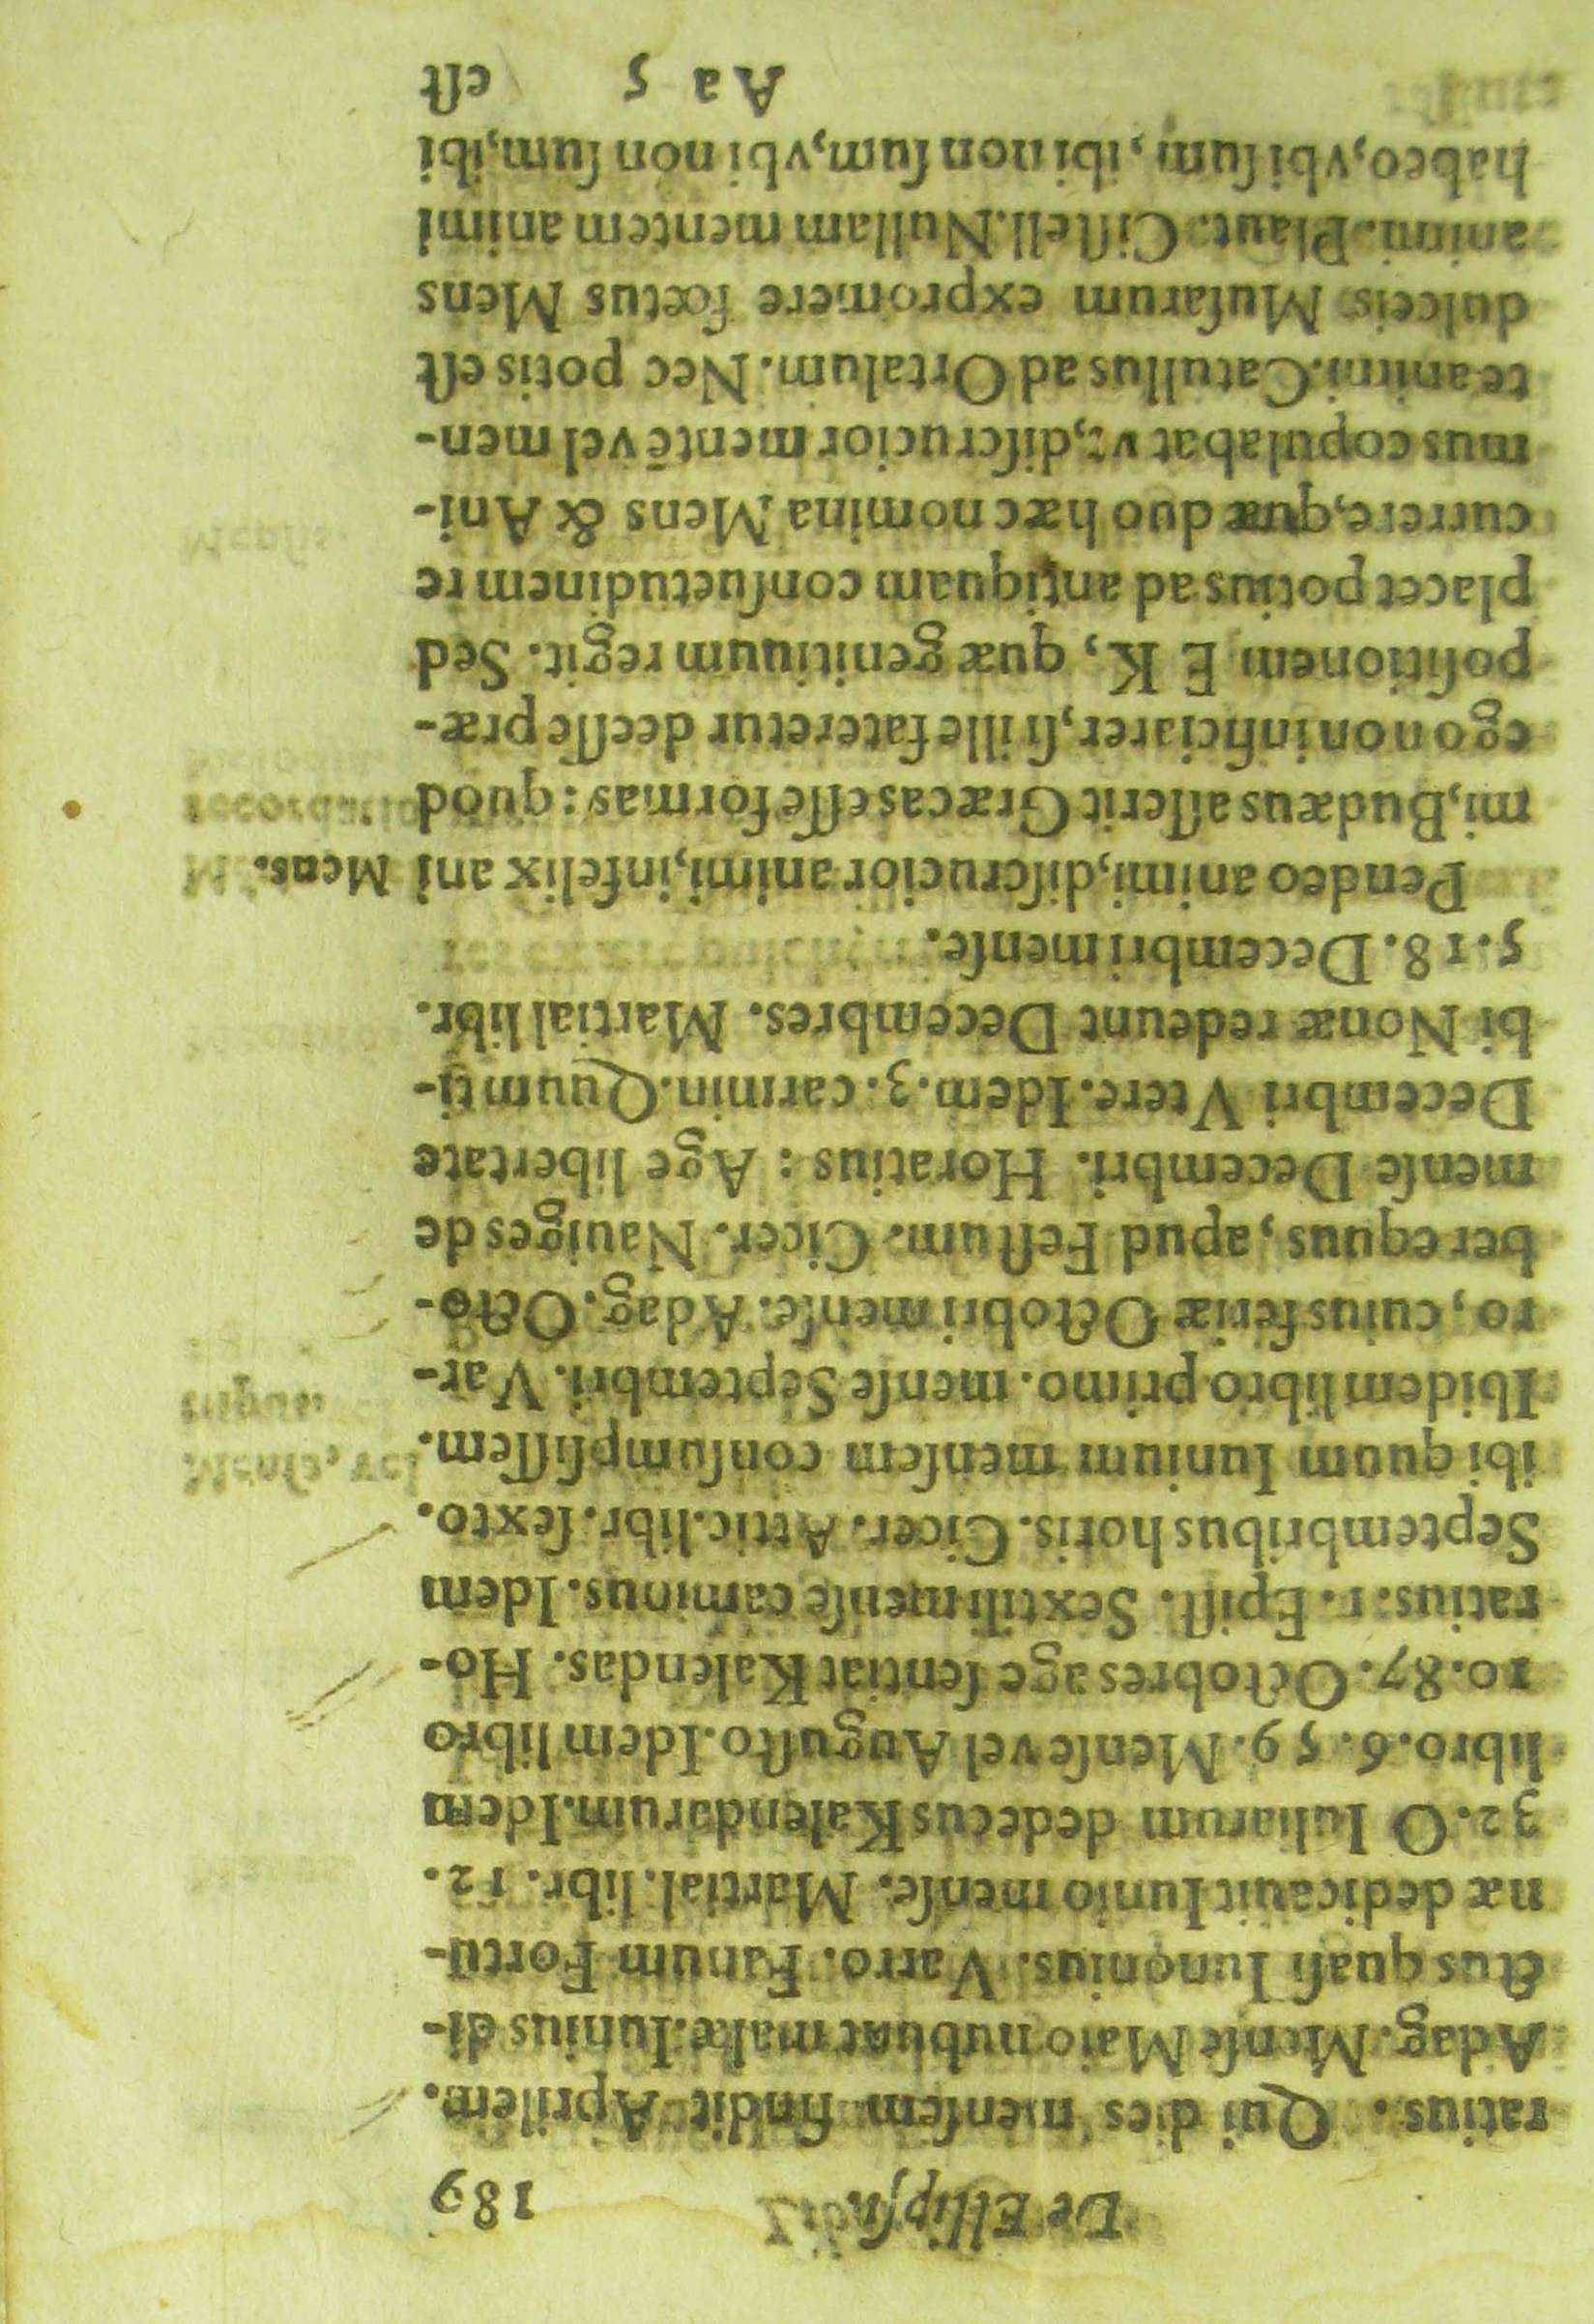 De Ellipsi. 189
ratius. Qui dies mensem findit Aprilem.
Adag. Mense Maio nubunt malæ. Iunius di-
ctus quasi Iunonius. Varro. Fanum Fortu-
næ dedicauit Iunio mense. Martial. libr. 12.
32. O Iuliarum dedecus Kalendarum. Idem
libro. 6. 59. Mense vel Augusto. Idem libro
10. 87. Octobres age sentiat Kalendas. Ho-
ratius. 1. Epist. Sextili mense caminus. Idem
Septembribus horis. Cicer. Attic. libr. sexto.
ibi quum Iunium mensem consumpsissem.
Ibidem libro primo. mense Septembri. Var-
ro, cuius feriæ Octobri mense. Adag. Octo-
ber equus, apud Festum. Cicer. Nauiges de
mense Decembri. Horatius: Age libertate
Decembri Vtere. Idem. 3. carmin. Quum ti-
bi Nonæ redeunt Decembres. Martial libr.
5. 18. Decembri mense.
Pendeo animi, discrucior animi, infelix ani Mens.
mi, Budæus asserit Græcas esse formas: quod
ego non inficiarer, si ille fateretur deesse præ-
positionem E K, quæ genitiuum regit. Sed
placet potius ad antiquam consuetudinem re
currere, quæ duo hæc nomina Mens & Ani-
mus copulabat vt, discrucior mentē vel men-
te animi. Catullus ad Ortalum. Nec potis est
dulceis Musarum expromere fœtus Mens
animi. Plaut. Cistell. Nullam mentem animi
habeo, vbi sum, ibi non sum, vbi non sum, ibi
A a 5 est